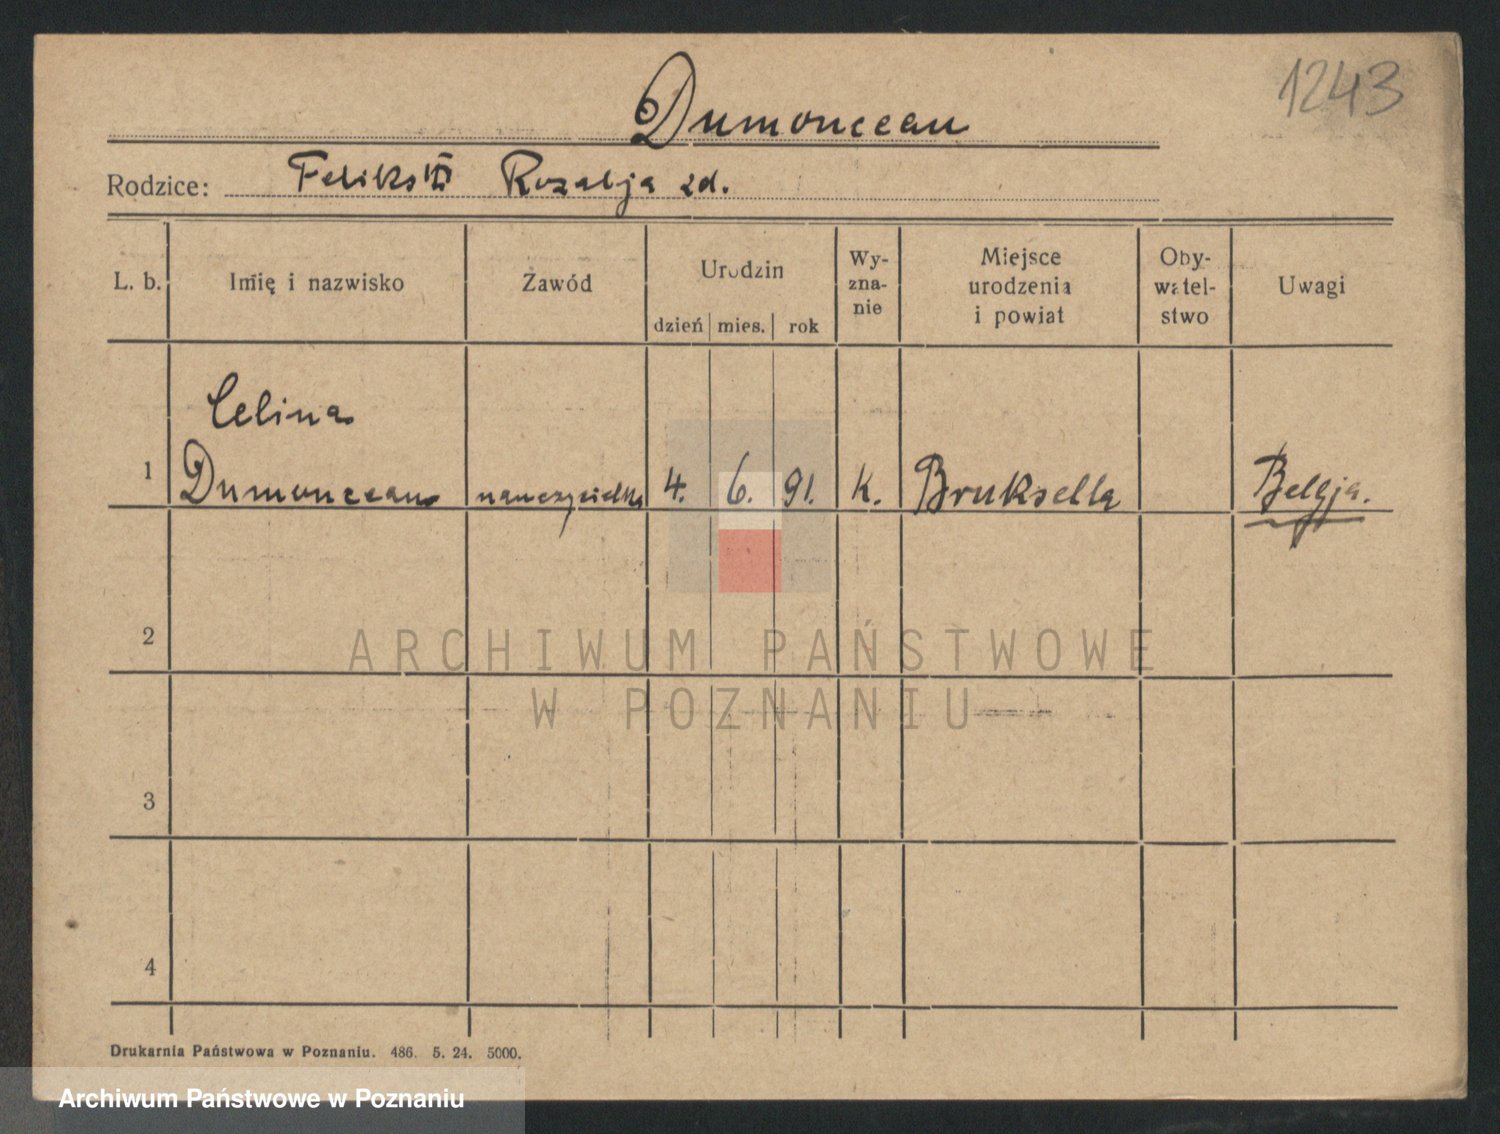 1243
Dumonceau
Rodzice: Feliks Rozalja zd.
L. b.
Imię i nazwisko
Zawód
Urodzin
dzień mies. rok
Wy-
zna-
nie
Miejsce
urodzenia
i powiat
Oby-
watel-
stwo
Uwagi
Celina
1 Dumonceau nauczycielka 4. 6. 91. k. Bruksella Belgja.
2
3
4
ARCHIWUM PAŃSTWOWE
W POZNANIU
Drukarnia Państwowa w Poznaniu. 486. 5. 24. 5000.
Archiwum Państwowe w Poznaniu